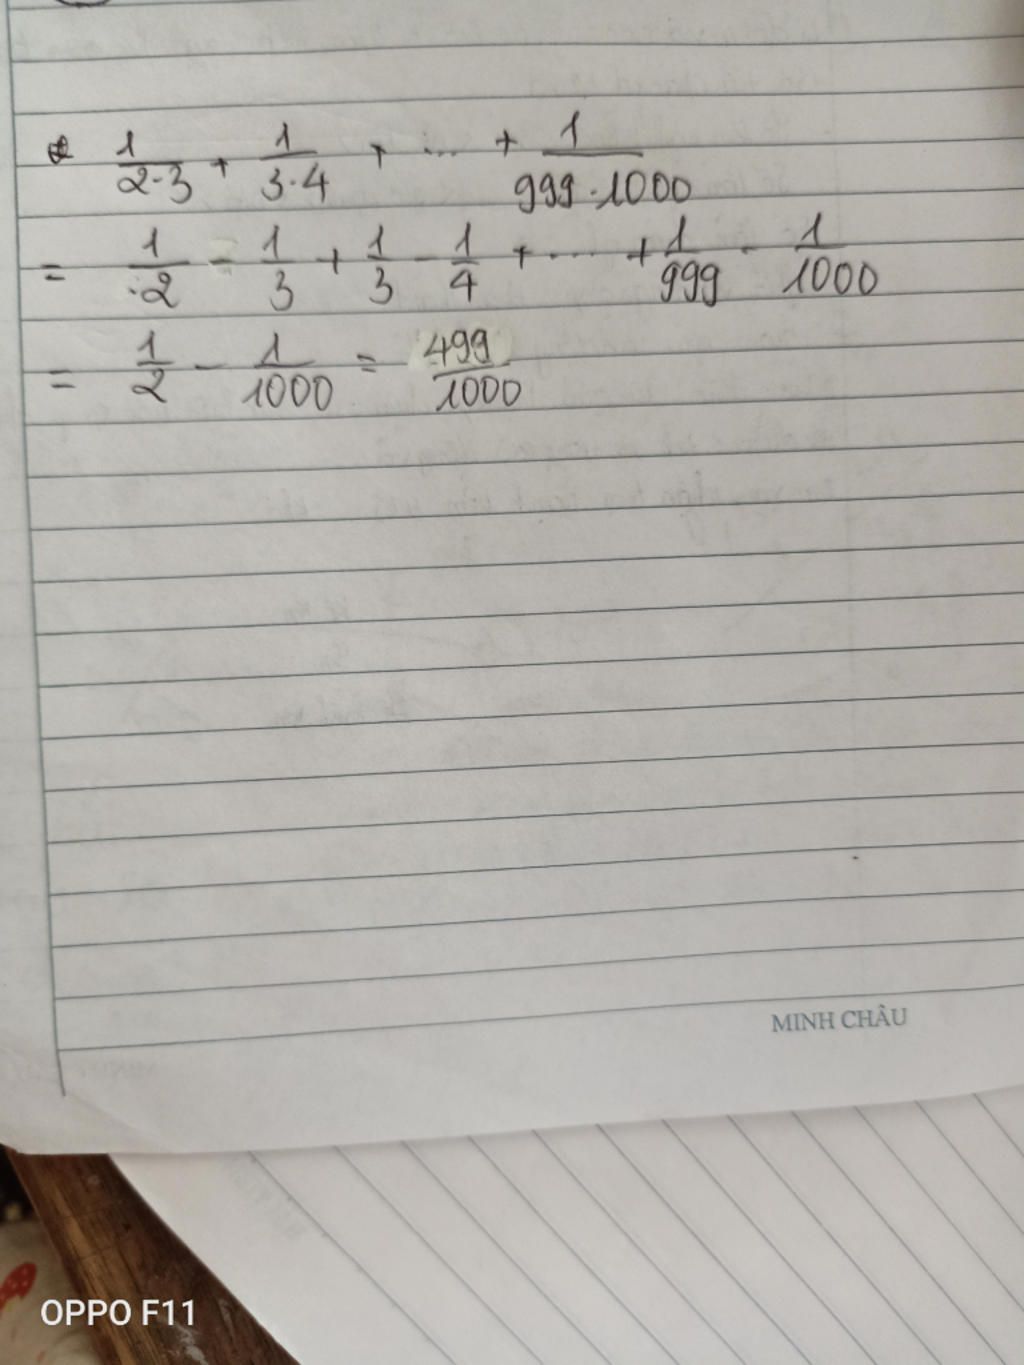 1/2·3 + 1/3·4 + ... + 1/999·1000
= 1/2 - 1/3 + 1/3 - 1/4 + .... + 1/999 - 1/1000
= 1/2 - 1/1000 = 499/1000
MINH CHÂU
OPPO F11